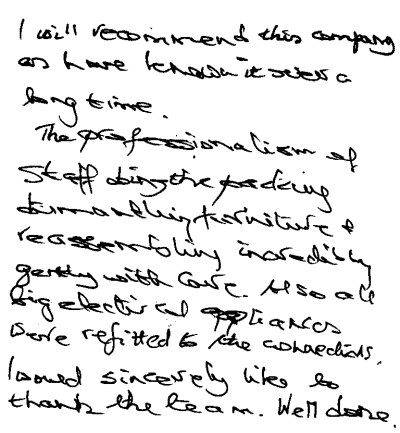 I will recommend this company
as have known it over a
long time.
The professionalism of
Staff doing the packing
dismantling furniture &
reassembling incredibly
gently with care. Also all
big electrical appliances
were refitted to the connections.
I would sincerely like to
thank the team. Well done.